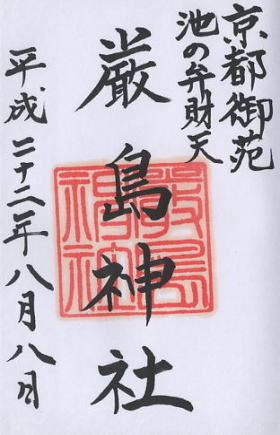 京都御苑
池の弁財天
厳島神社
平成二十二年八月八日
嚴島
神社